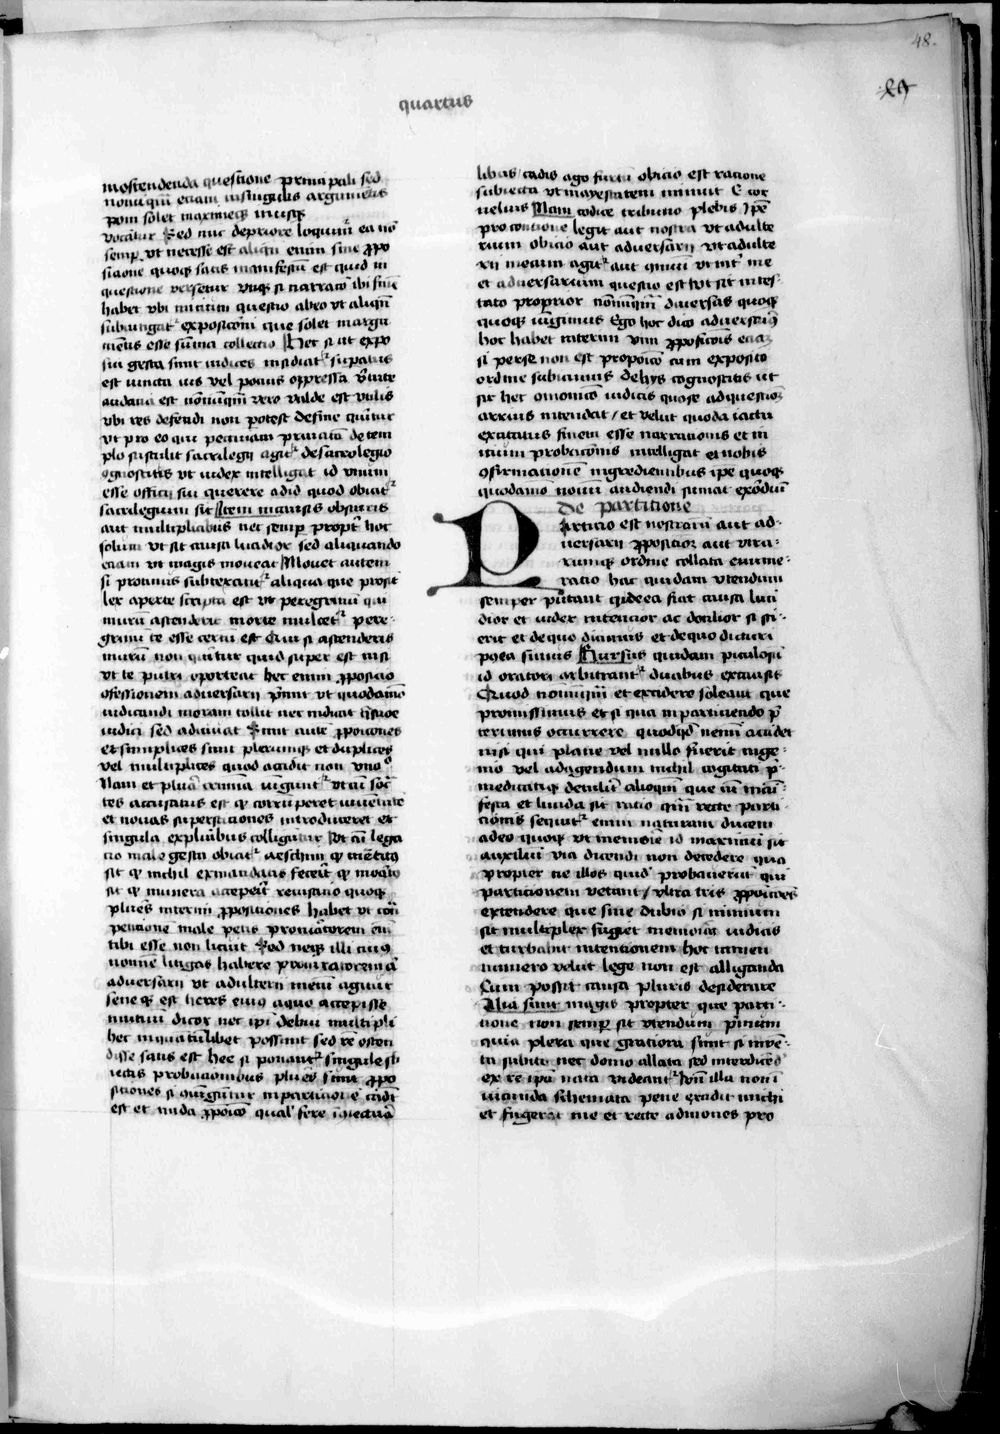 48.
quartus
inostendenda questione principali sed
nonnūqm̄ etiam insingulis argumentis
poni solet maximeqꝫ
vocātur Sed nūc depriore loquimur ea nō
semp̱ vt necesse est aliqn̄ enim sine ꝓpo
sitione quoqꝫ satis manifestū est quid in
questione versetur vtiqꝫ si narratō ibi finē
habet vbi initium questio adeo vt aliqn̄
subiungatur expositioni que solet
mentis esse sūma collectio Hec si ut expo
sui gesta sunt iudices insidiator supatus
est uincta uis vel potius oppressa virtute
audatia est nōnūqm̄ vero valde est vtilis
vbi res defendi non potest de fine queritur
vt pro eo qui pecuniam priuatā de tem
plo sustulit sacrilegii agitur de sacrilegio
cognoscitis vt iudex intelligat id vnum
esse officii sui querere an id quod obicitur
sacrilegium sit Item in causis obscuris
aut multiplicibus nec semp̱ propter hoc
solum vt sit causa lucidior sed aliquando
etiam vt magis moueat Mouet autem
si protinus subtexantur aliqua que prosit
lex aperte scripta est vt peregrinus qui
murū ascenderit morte multetur pere-
grinū te esse certū est Quin ascenderis
murū non queritur quid super est nisi
vt te puniri oporteat hec enim ꝓpositio
cōfessionem aduersarii p̄mit et quodāmo
iudicandi moram tollit nec indicat q̄stione
iudici sed adiuuat Sunt autē ꝓpositiones
et simplices sunt plerumqꝫ et duplices
vel multiplices quod accidit non vno
Nam et plura crimina iunguntur vt cū socra
tes accusatus est qꝫ corrūperet iuuentute
et nouas superstitiones introduceret et
singula ex pluribus colliguntur Vt cū lega
tio male gesta obicitur aeschini qꝫ mētitus
sit qꝫ nichil ex mandatis fecerit qꝫ
sit qꝫ munera acceperit recusatio quoqꝫ
plures interim ꝓpositiones habet vt
petitione male petis procuratorem enī
tibi esse non licuit Sed neqꝫ illi cuius
nomine litigas habere procuratorem
aduersarii vt adulterii metū
sene qꝫ est heres eius a quo accepisse
mutuū dicor nec ipi debui multipli
hec in quantūlibet possunt sed rē osten
disse satis est hec si ponantur singule sbi
iectis probationibus plures sunt ꝓpo
sitiones si cōiungūtur in partitionē cadūt
est et nuda ꝓpositio qualis fere in
libus cedis ago furtū obicio est ratione
subiecta vt mayestatem minuit C cor
nelius Nam codicē tribunus plebis ipē
pro contione legit aut nostra vt adulte
rium obicio aut aduersarii vt adulte
rii mecum agitur aut cōmunis vt int̄ me
et aduersarium questio est vter sit intes-
tato proprior nōnūqm̄ diuersas quoqꝫ
quoqꝫ iungimus Ego hoc dico aduersarius
hoc habet interim vim ꝓpositōis etiā
si per se non est propositio cum exposito
ordine subicimus de hys cognoscitis ut
sit hec iudicis quo se ad questionē
acrius intendat / et velut quodā tactu
excitatus finem esse narrationis et in
itium probationis intelligat et nobis
cōfirmationē ingredientibus ipē quoqꝫ
quodāmō nouū audiendi sumat exordiū
De partitione
Partitio est nostrarū aut ad-
uersarii ꝓpositionū aut vtra-
rumqꝫ ordine collata enume-
ratio hac quidam vtendum
semper putant qꝫ de ea fiat causa luci
dior et iudex intentior ac docilior si sci-
erit et de quo dicimus et de quo dicturi
postea simus Rursus quidam piculosū
id oratori arbitrantur duabus ex causis
Quod nōnūqm̄ et excidere soleant que
promissimus et si qua in partiendo p̄
terimus occurrere quod qd̄ nemini accidet
nisi qui plane vel nullo fuerit inge-
nio vel ad agendum nichil cogitati p̄-
meditatiqꝫ detulerit alioqm̄ que tā mani-
festa et lucida sit ratio qm̄ recte parti-
cionis sequitur enim naturam ducem
adeo quoqꝫ vt memorie id maximū sit
auxiliū via dicendi non decedere qua
propter ne illos quidē probauerim qui
partitionem vetant vltra tris ꝓpositōes
extendere que sine dubio si nimium
sit multiplex fugiet memoriā iudicis
et turbabit intentionem hoc tamen
numero velut lege non est alliganda
Cum possit causa pluris desiderare
Alia sunt magis propter que parti-
tione non semp̱ sit vtendum primum
quia plera que gratiora sunt si inuē-
ta subito nec domo allata sed inter dicēdū
ex rē ipā nata videantur Vnde illa non in
iucunda schemata pene excidit michi
et fugerat me et recte admones pro